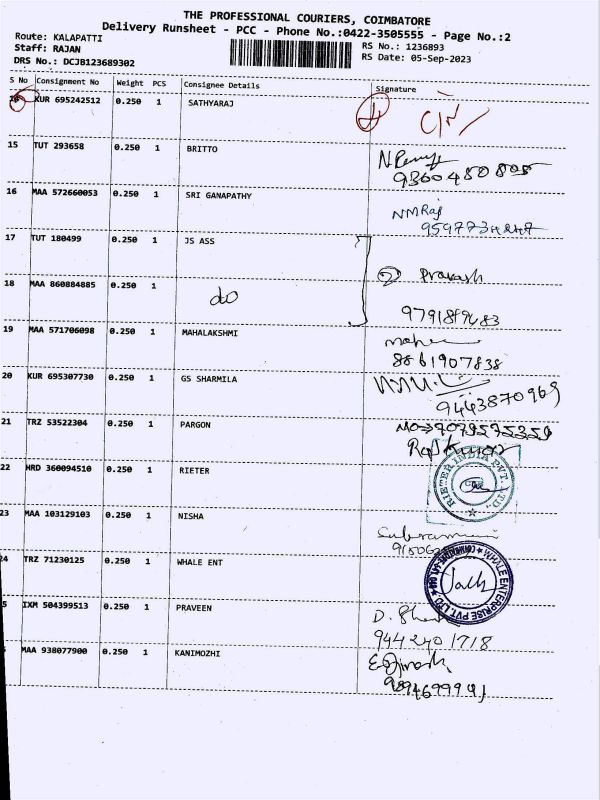 THE PROFESSIONAL COURIERS, COIMBATORE
Delivery Runsheet - PCC - Phone No.:0422-3505555 - Page No.:2
Route: KALAPATTI
Staff: RAJAN
DRS No.: DCJB123689302
RS No.: 1236893
RS Date: 05-Sep-2023
S No Consignment No Weight PCS Consignee Details Signature
KUR 695242512 0.250 1 SATHYARAJ
15 TUT 293658 0.250 1 BRITTO
16 MAA 572660053 0.250 1 SRI GANAPATHY
NMRaj
17 TUT 180499 0.250 1 JS ASS
2 Prakash
18 MAA 860884885 0.250 1 do
19 MAA 571706098 0.250 1 MAHALAKSHMI
8861907838
20 KUR 695307730 0.250 1 GS SHARMILA
9443870969
21 TRZ 53522304 0.250 1 PARGON
Raj Kumar
22 HRD 360094510 0.250 1 RIETER
RIETER INDIA PVT. LTD.
23 MAA 103129103 0.250 1 NISHA
24 TRZ 71230125 0.250 1 WHALE ENT
WHALE ENTERPRISE PVT LTD
5 IXM 504399513 0.250 1 PRAVEEN
9442701718
MAA 938077900 0.250 1 KANIMOZHI